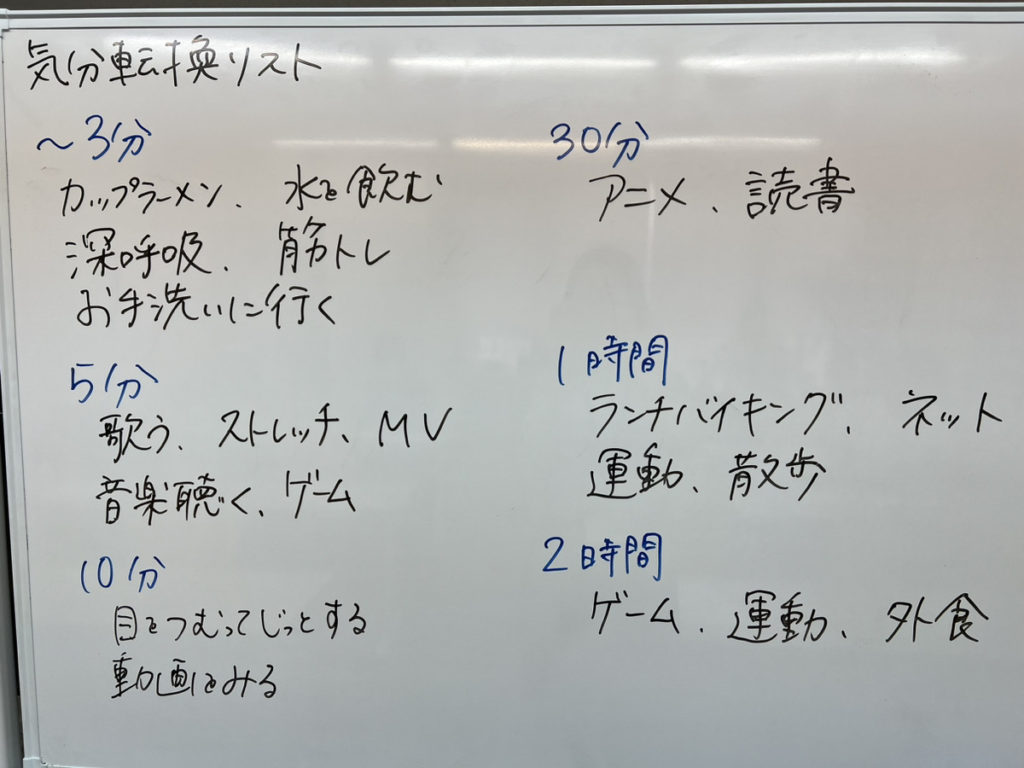 気分転換リスト
～3分
カップラーメン、水を飲む
深呼吸、筋トレ
お手洗いに行く
5分
歌う、ストレッチ、MV
音楽聴く、ゲーム
10分
目をつむってじっとする
動画をみる
30分
アニメ、読書
1時間
ランチバイキング、ネット
運動、散歩
2時間
ゲーム、運動、外食